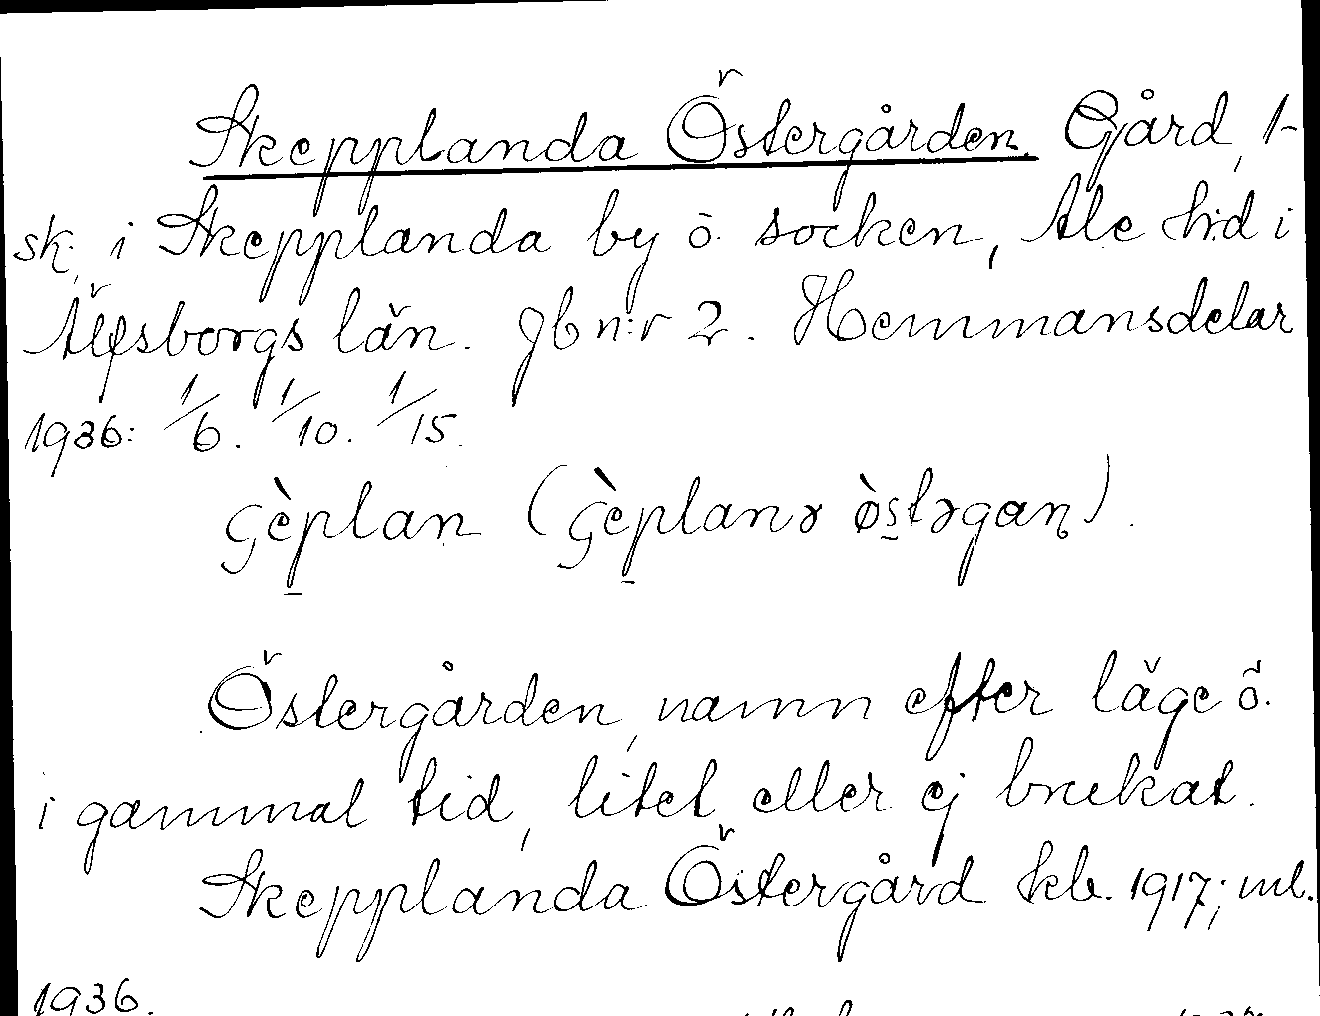 Skepplanda Östergården. Gård, 1-
sk. i Skepplanda by o. socken, Ale h:d i
Älfsborgs län. Jb n:r 2. Hemmansdelar
1936: 1/6. 1/10. 1/15.
çèplan (çèplanə òstəgaɳ).
Östergården, namn efter läge ö.
i gammal tid, litet eller ej brukat.
Skepplanda Östergård skb. 1917; ml.
1936.